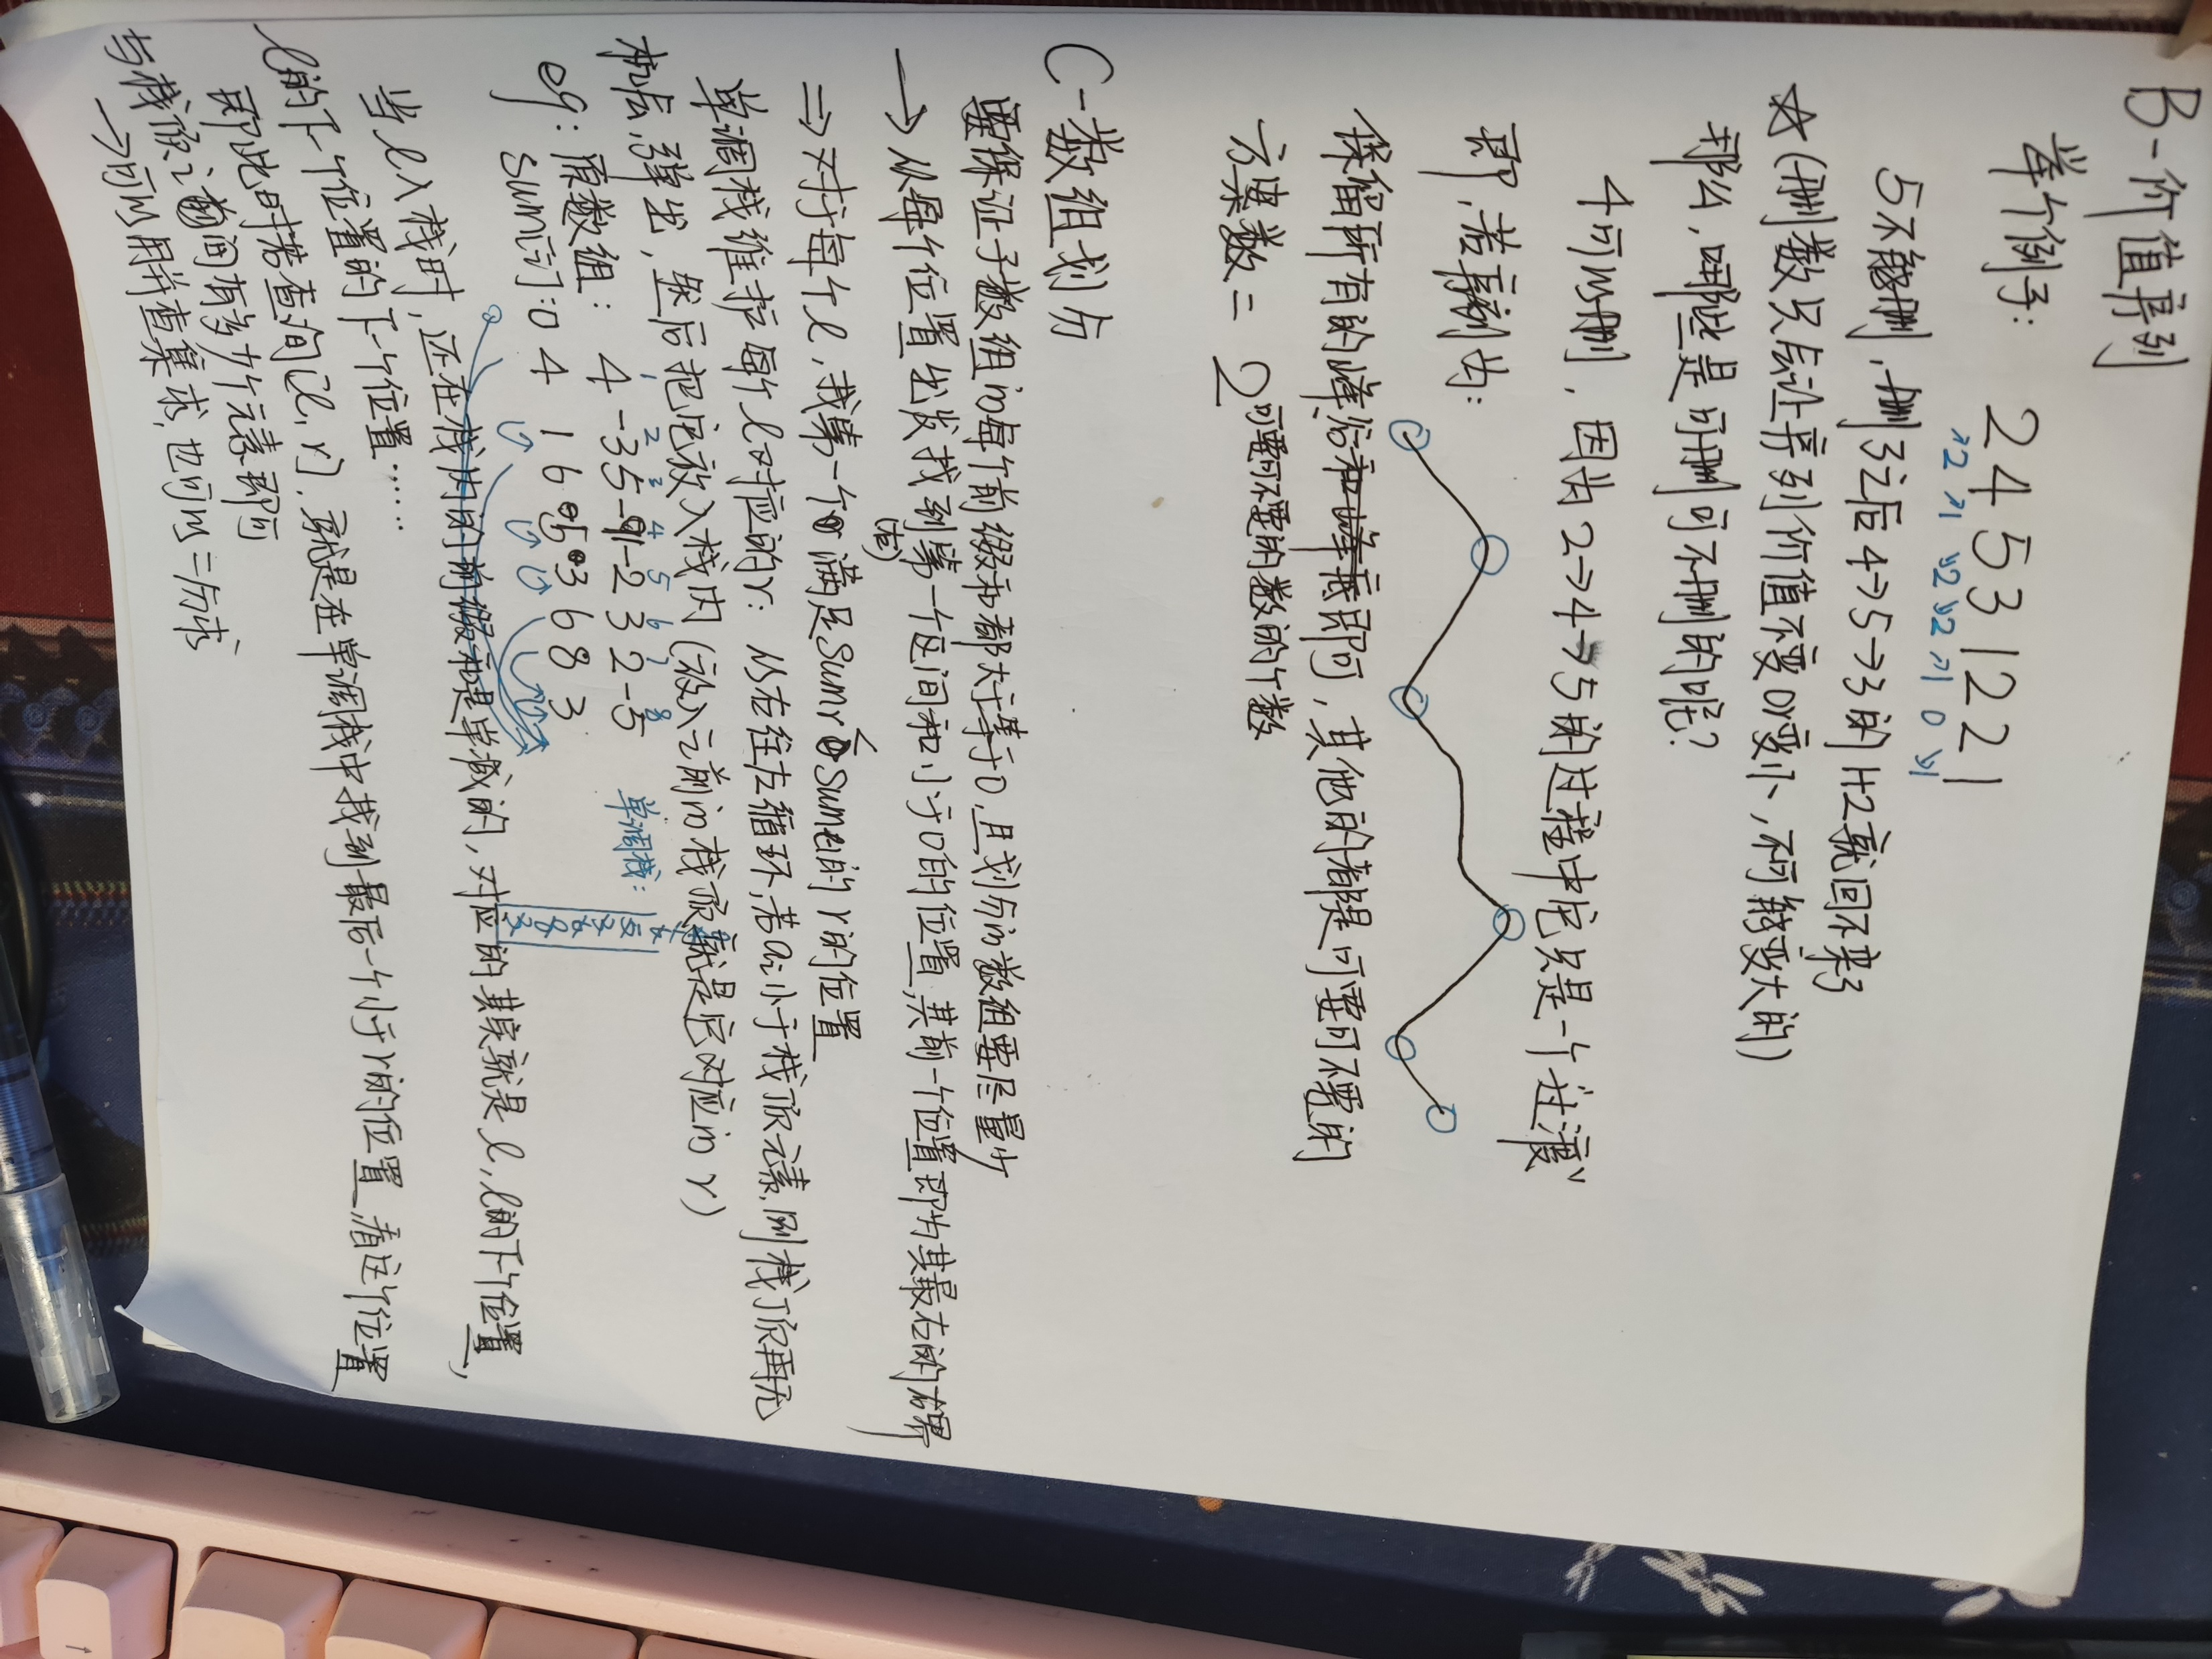 B-价值序列
举个例子: 2 4 5 3 1 2 2 1
↗2 ↗1 ↘2 ↘2 ↗1 0 ↘1
5不能删,删了之后4→5→3的1+2就回不来了
☆(删数只会让序列价值不变or变小,不可能变大的)
那么,哪些是可删可不删的呢?
4可以删,因为2→4→5的过程中它只是一个过渡
即,若序列为:
保留所有的峰谷即可,其他的都是可要可不要的
方案数= 2^可要可不要的数的个数
C-数组划分
要保证子数组的每个前缀和都大于等于0,且划分的数组要尽量少
→ 从每个位置出发找到第一个区间和小于0的位置,其前一个位置即为其最右的右界
(右)
⇒对于每个l,找第一个满足Sumr<Sume的r的位置
单调栈维护每个l对应的r: 从右往左循环,若ai小于栈顶元素,则栈顶再无
机会,弹出,然后把它放入栈内(放入之前的栈顶就是它对应的r)
eg: 原数组: 4 -3 5 -1 -2 3 2 -5
1 2 3 4 5 6 7 8
sum[]: 0 4 1 6 5 3 6 8 3
单调栈:
当l入栈时,还在栈内的前缀和是单减的,对应的其实就是l,l的下个位置,
l的下个位置的下个位置……
即此时若查询[l,r],就是在单调栈中找到最后一个小于r的位置,看这个位置
与栈顶之间有多少个元素即可
→可以用并查集求,也可以二分求